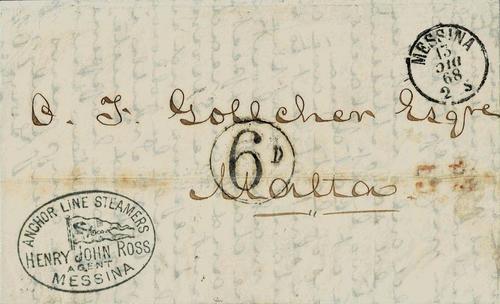 MESSINA
13
GIU
68
2 S
O. F. Gollcher Esqre
6D
Malta
ANCHOR LINE STEAMERS
HENRY JOHN ROSS
AGENT
MESSINA